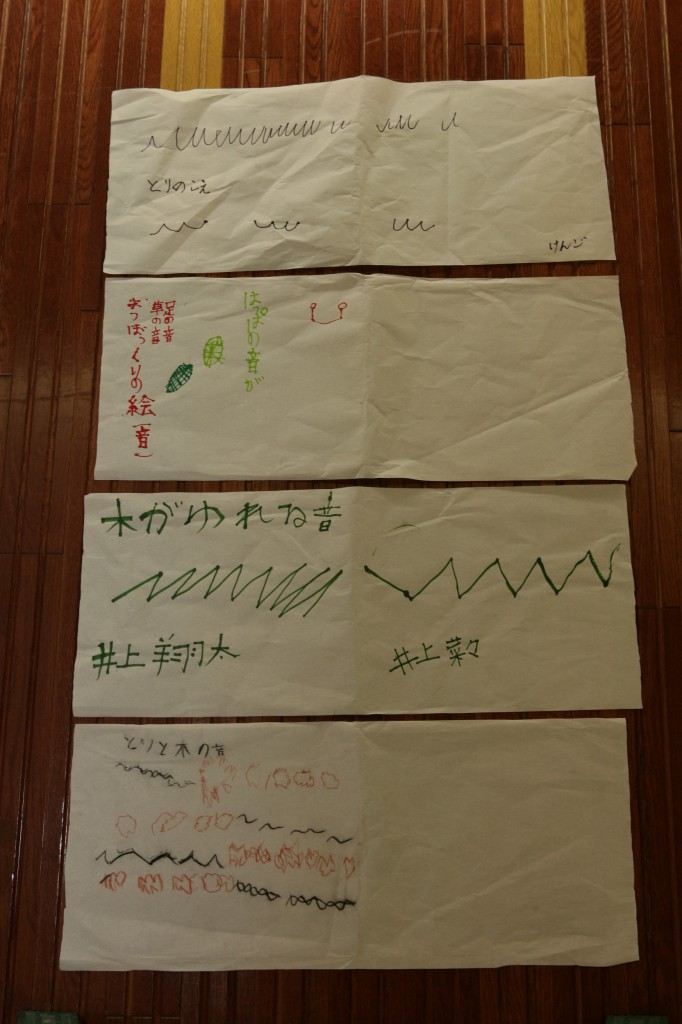 とりのこえ
けんご
はっぱの音が
足の音
草の音
まつぼっくりの絵(音)
木がゆれる音
井上翔太
井上菜々
とりと木の音